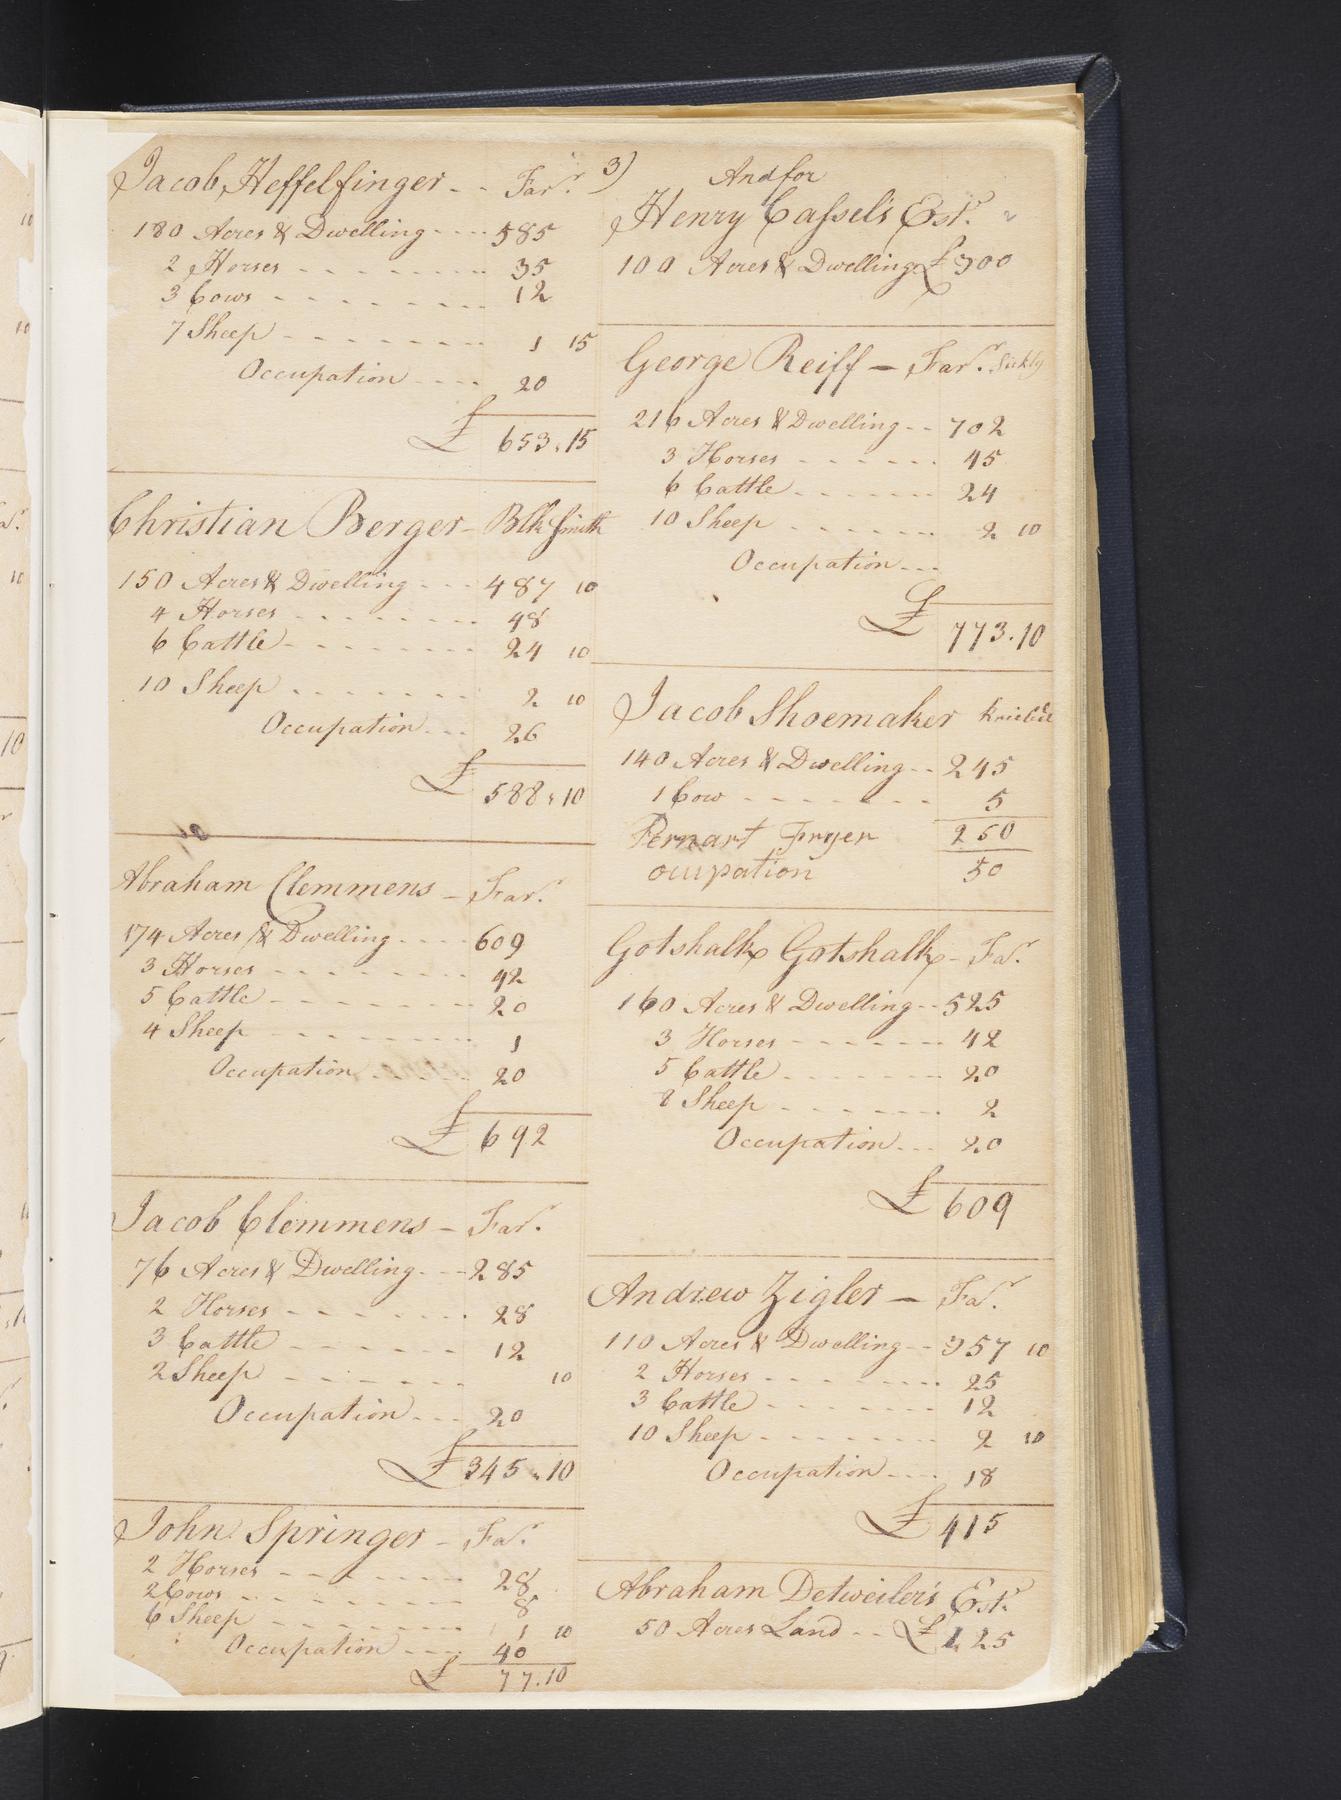 Jacob Heffelfinger - - Far.r
180 Acres & Dwelling - - - - 585
2 Horses - - - - - - - - 35
3 Cows - - - - - - - - 12
7 Sheep - - - - - - - - 1 15
Occupation - - - - 20
£ 653,15
Christian Berger - Blk Smith
150 Acres & Dwelling - - - 487 10
4 Horses - - - - - - - - 48
6 Cattle - - - - - - - - 24 10
10 Sheep - - - - - - - 2 10
Occupation - - - 26
£ 588,10
Abraham Clemmens - Far.r
174 Acres & Dwelling - - - - 609
3 Horses - - - - - - - - 42
5 Cattle - - - - - - - - 20
4 Sheep - - - - - - - - 1
Occupation - - - - - 20
£ 692
Jacob Clemmens - Far.r
76 Acres & Dwelling - - - 285
2 Horses - - - - - - - 28
3 Cattle - - - - - - - 12
2 Sheep - - - - - - - 10
Occupation - - - 20
£ 345,10
John Springer - Fa.r
2 Horses - - - - - - - 28
2 Cows - - - - - - - - 8
6 Sheep - - - - - - - - 1 10
Occupation - - - - 40
£ 77.10
3)
And for
Henry Cassel's Est.r
100 Acres & Dwelling £ 300
George Reiff - Far.r Sickly
216 Acres & Dwelling - - 702
3 Horses - - - - - - 45
6 Cattle - - - - - - - 24
10 Sheep - - - - - - 2 10
Occupation - - -
£ 773.10
Jacob Shoemaker
140 Acres & Dwelling - - 245
1 Cow - - - - - - - - 5
250
Pernart Fryer
ocupation 50
Gotshalk Gotshalk - Fa.r
160 Acres & Dwelling - - 525
3 Horses - - - - - - - 42
5 Cattle - - - - - - - - 20
8 Sheep - - - - - - - 2
Occupation - - - 20
£ 609
Andrew Zigler - Fa.r
110 Acres & Dwelling - - 357 10
2 Horses - - - - - - - - 25
3 Cattle - - - - - - - - 12
10 Sheep - - - - - - - 2 10
Occupation - - - - 18
£ 415
Abraham Detweiler's Est.r
50 Acres Land - - £ 125